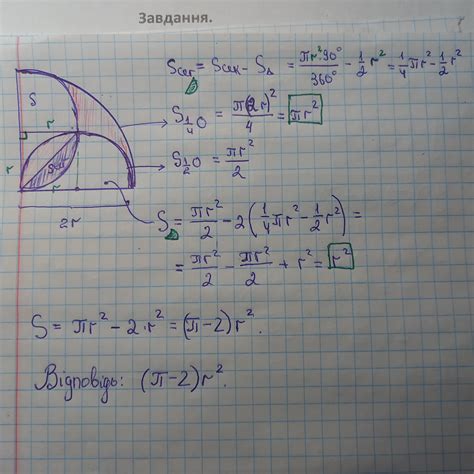 Завдання.
Sсег = Sсек - S△ = πr²90°/360° - 1/2 r² = 1/4 πr² - 1/2 r²
S 1/4 О = π(2r)²/4 = πr²
S 1/2 О = πr²/2
S = πr²/2 - 2(1/4 πr² - 1/2 r²) =
= πr²/2 - πr²/2 + r² = r²
S
r
r
Sсег
r
2r
S = πr² - 2·r² = (π-2)r².
Відповідь: (π-2)r².